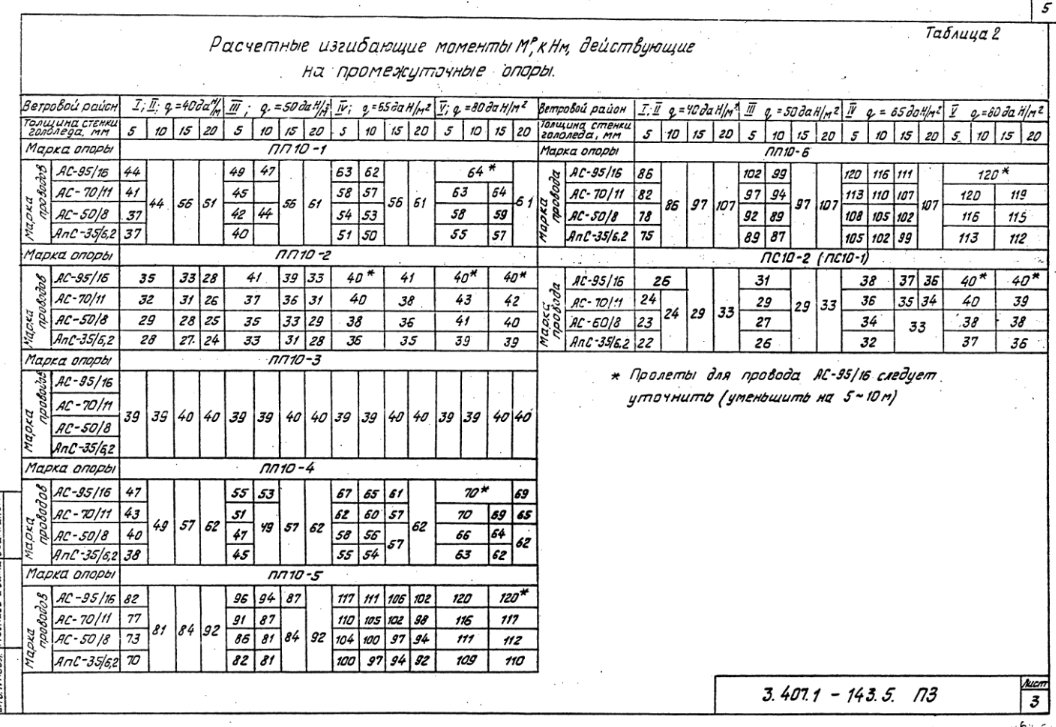 5
Таблица 2
Расчетные изгибающие моменты Мᵖ, кНм, действующие
на промежуточные опоры.
Ветровой район I; II; q=40даН/м² III; q=50даН/м² IV; q=65даН/м² V; q=80даН/м²
Толщина стенки гололеда, мм 5 10 15 20 5 10 15 20 5 10 15 20 5 10 15 20
Марка опоры ПП10-1
Марка проводов
АС-95/16 44 44 56 51 49 47 56 61 63 62 56 61 64* 61
АС-70/11 41 45 58 57 63 64
АС-50/8 37 42 44 54 53 58 59
АпС-35/6,2 37 40 51 50 55 57
Марка опоры ПП10-2
Марка проводов
АС-95/16 35 33 28 41 39 33 40* 41 40* 40*
АС-70/11 32 31 26 37 36 31 40 38 43 42
АС-50/8 29 28 25 35 33 29 38 36 41 40
АпС-35/6,2 28 27 24 33 31 28 36 35 39 39
Марка опоры ПП10-3
Марка проводов
АС-95/16
АС-70/11
39 39 40 40 39 39 40 40 39 39 40 40 39 39 40 40
АС-50/8
АпС-35/6,2
Марка опоры ПП10-4
Марка проводов
АС-95/16 47 49 57 62 55 53 57 62 67 65 61 62 70* 69
АС-70/11 43 51 49 62 60 57 70 69 65
АС-50/8 40 47 58 56 57 66 64 62
АпС-35/6,2 38 45 55 54 63 62
Марка опоры ПП10-5
Марка проводов
АС-95/16 82 81 84 92 96 94 87 92 117 111 106 102 120 120*
АС-70/11 77 91 87 84 110 105 102 98 116 117
АС-50/8 73 86 81 104 100 97 94 111 112
АпС-35/6,2 70 82 81 100 97 94 92 109 110
Ветровой район I; II q=40даН/м² III q=50даН/м² IV q=65даН/м² V q=80даН/м²
Толщина стенки гололеда, мм 5 10 15 20 5 10 15 20 5 10 15 20 5 10 15 20
Марка опоры ПП10-6
Марка провода
АС-95/16 86 86 97 107 102 99 97 107 120 116 111 107 120*
АС-70/11 82 97 94 113 110 107 120 119
АС-50/8 78 92 89 108 105 102 116 115
АпС-35/6,2 75 89 87 105 102 99 113 112
ПС10-2 (ПС10-1)
Марка провода
АС-95/16 26 29 33 31 29 33 38 37 36 40* 40*
АС-70/11 24 24 29 36 35 34 40 39
АС-50/8 23 27 34 33 38 38
АпС-35/6,2 22 26 32 37 36
* Пролеты для провода АС-95/16 следует
уточнить (уменьшить на 5~10м)
3.407.1-143.5. ПЗ
Лист
3